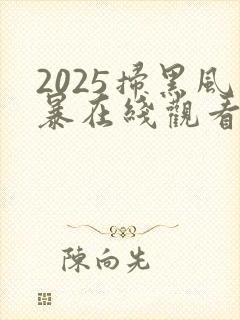 2025掃黑風
暴在綫觀看
陳向先